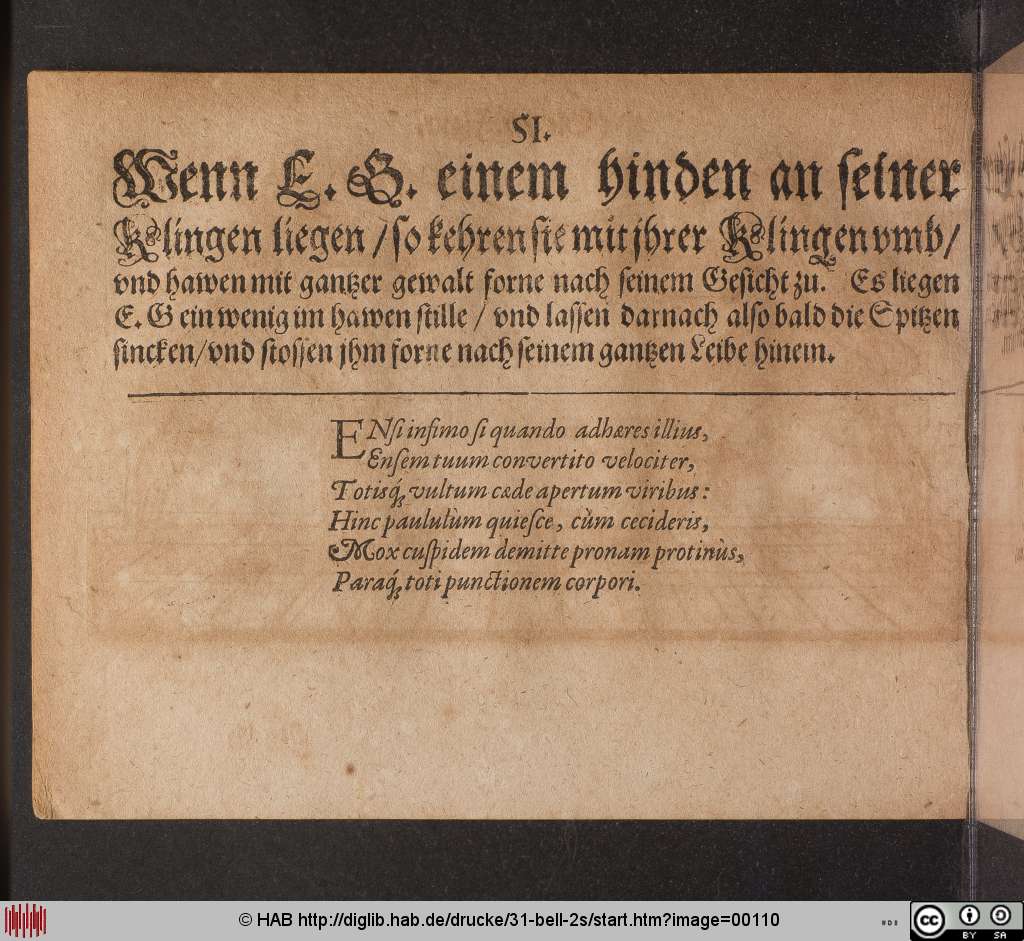 SI.
Wenn E. G. einem hinden an ſeiner
Klingen liegen / ſo kehren ſie mit jhrer Klingen vmb /
vnd hawen mit gantzer gewalt forne nach ſeinem Geſicht zu. Es liegen
E. G ein wenig im hawen ſtille / vnd laſſen darnach alſo bald die Spitzen
ſincken / vnd ſtoſſen jhm forne nach ſeinem gantzen Leibe hinein.
ENſi infimo ſi quando adhæres illius,
Enſem tuum convertito velociter,
Totisq́ꝫ vultum cæde apertum viribus:
Hinc paululùm quieſce, cùm cecideris,
Mox cuſpidem demitte pronam protinùs,
Paraq́ꝫ toti punctionem corpori.
© HAB http://diglib.hab.de/drucke/31-bell-2s/start.htm?image=00110
cc BY SA